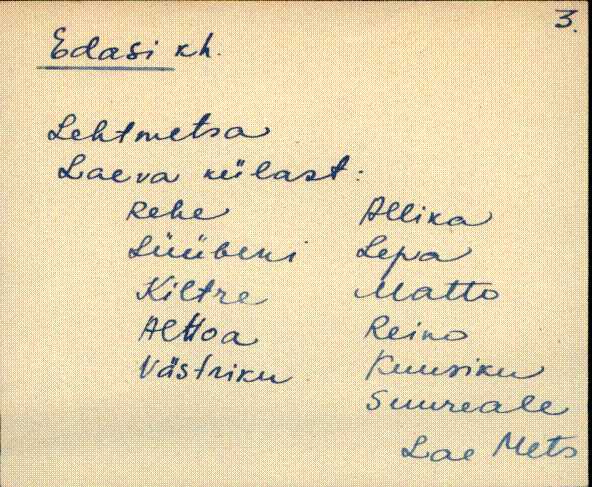 3.
Edasi kh.
Lehtmetsa
Laeva külast:
Rehe Allika
Lüübeni Lepa
Kiltre Matto
Alttoa Reino
Västriku Kuusiku
Suureale
Lae Mets